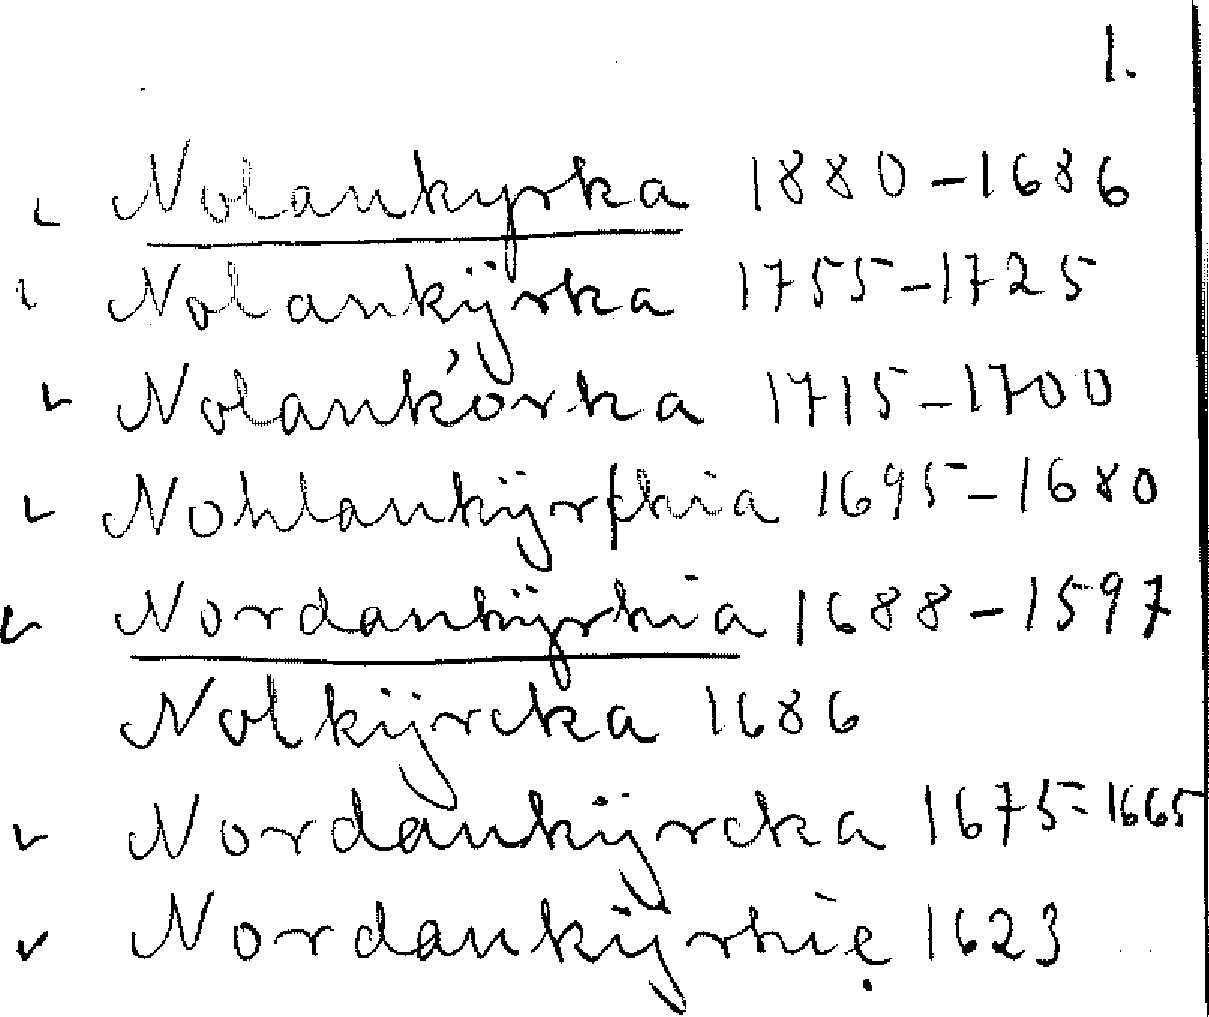 1.
Nolankyrka 1880-1686
Nolankÿrka 1755-1725
Nolankórka 1715-1700
Nohlankÿrckia 1695-1680
Nordankÿrkia 1688-1597
Nolkÿrcka 1686
Nordankÿrcka 1675-1665
Nordankÿrkie 1623